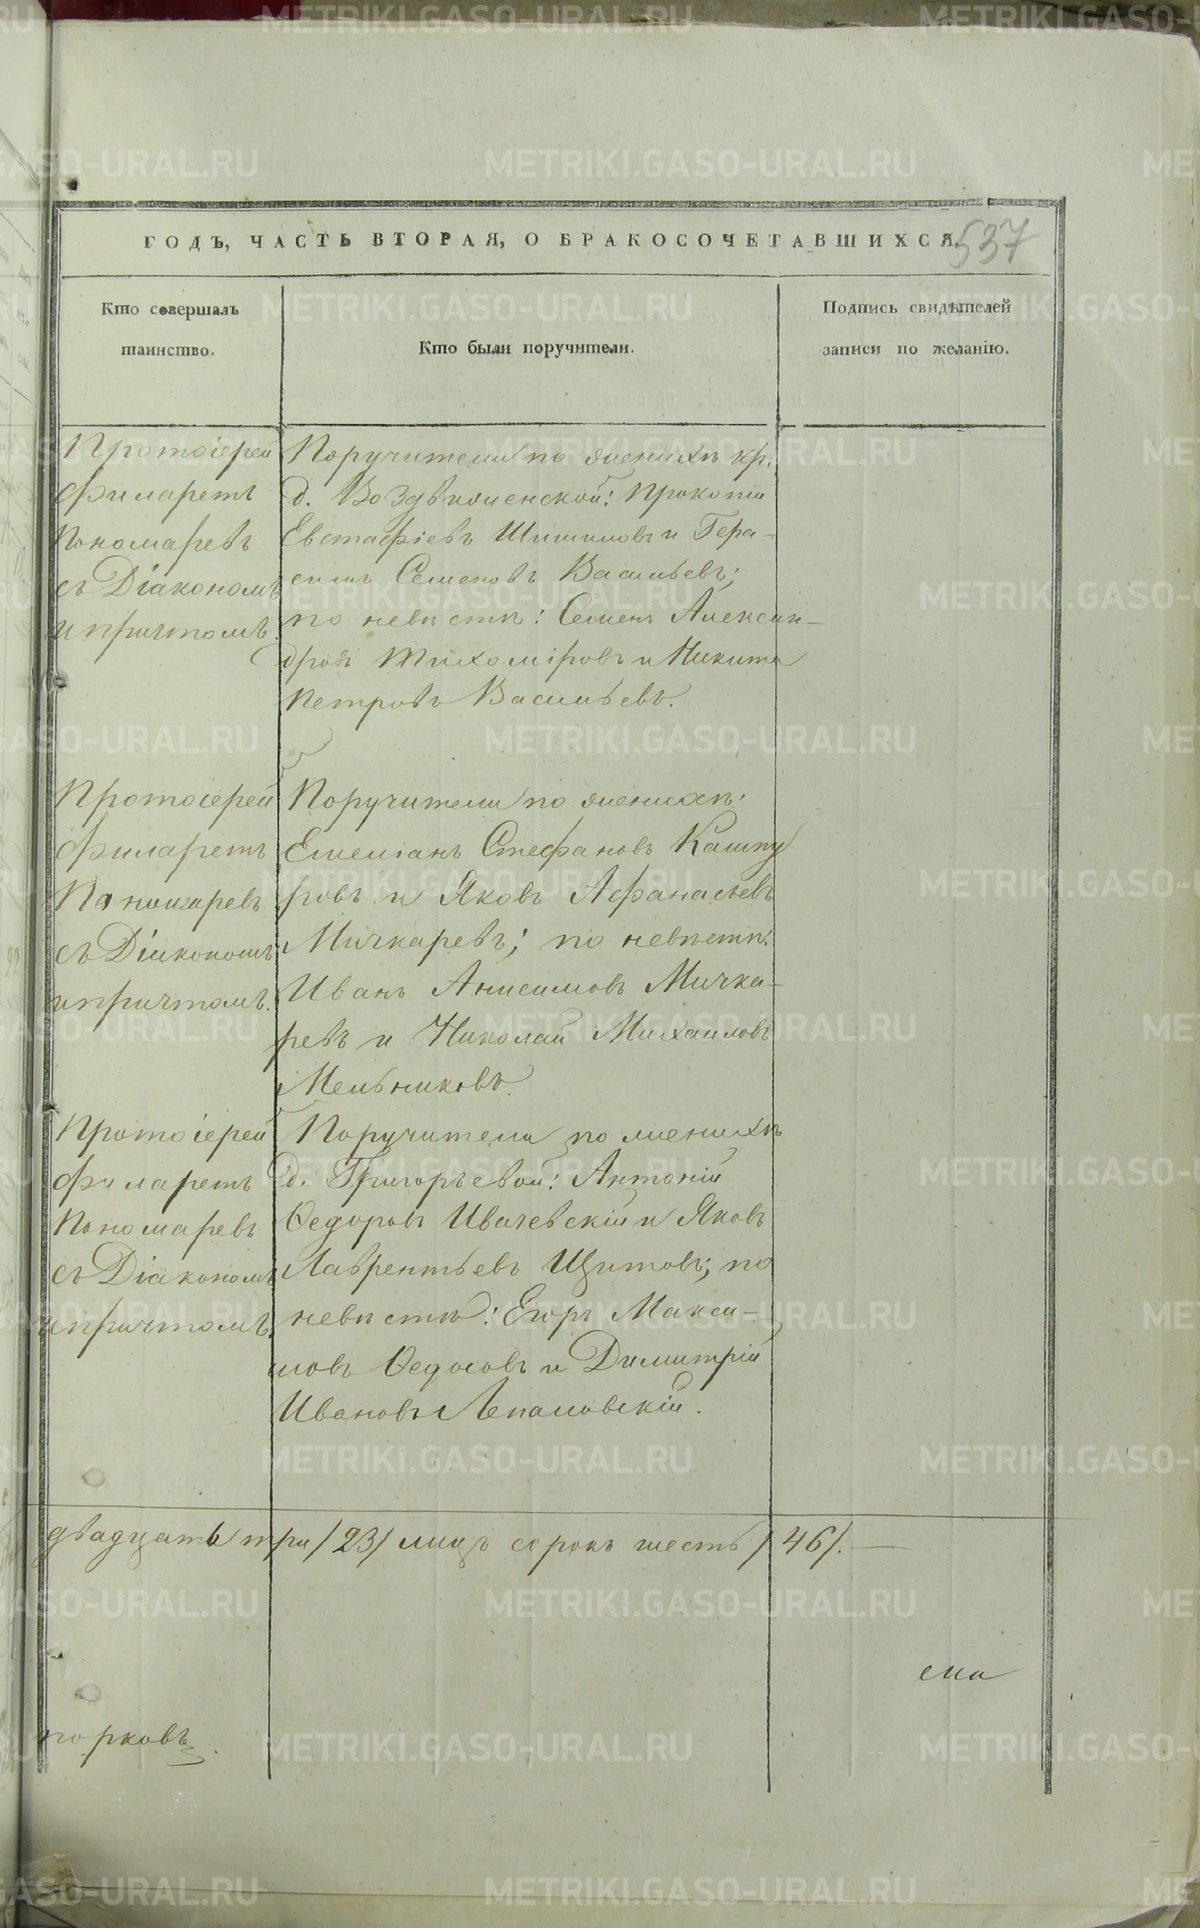 ГОДЪ, ЧАСТЬ ВТОРАЯ, О БРАКОСОЧЕТАВШИХСЯ.
537
Кто совершалъ
таинство.
Кто были поручители.
Подпись свидѣтелей
записи по желанію.
Протоіерей
Филаретъ
Пономаревъ
съ Діакономъ
и причтомъ.
Поручители по женихѣ кр.
д. Воздвиженской: Прокопій
Евстафіевъ Шишиловъ и Гера-
симъ Семеновъ Васильевъ;
по невѣстѣ: Семенъ Алексан-
дровъ Тихоміровъ и Никита
Петровъ Васильевъ.
Протоіерей
Филаретъ
Пономаревъ
съ Діакономъ
и причтомъ.
Поручители по женихѣ:
Емеліанъ Стефановъ Кашпу
ровъ и Яковъ Афанасьевъ
Мичкаревъ; по невѣстѣ:
Иванъ Анисимовъ Мичка-
ревъ и Николай Михаиловъ
Мельниковъ.
Протоіерей
Филаретъ
Пономаревъ
съ Діакономъ
и причтомъ.
Поручители по женихѣ
д. Григорьевой: Антоній
Ѳедоровъ Ивачевскій и Яковъ
Лаврентьевъ Щитовъ; по
невѣстѣ: Егоръ Макси-
мовъ Ѳедосовъ и Димитрій
Ивановъ Лепаловскій.
двадцать три /23/ лицъ сорокъ шесть /46/. —
порковъ
METRIKI.GASO-URAL.RU